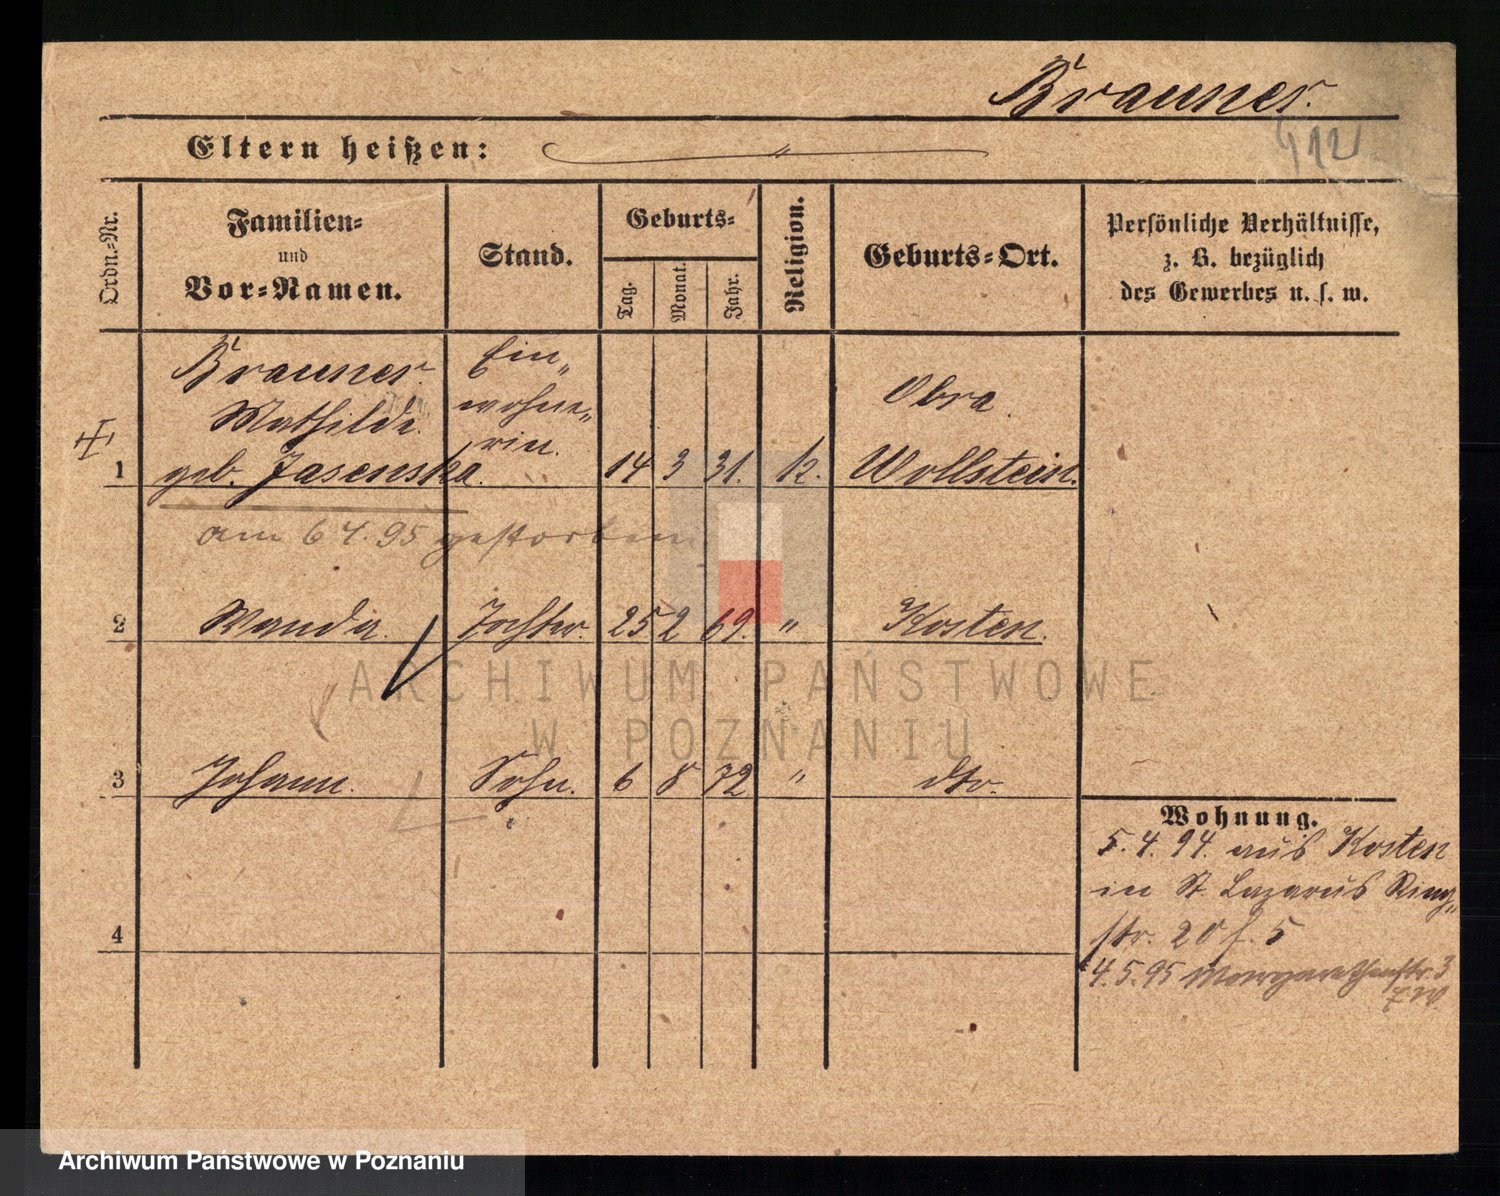 Brauner.
412
Eltern heißen:
Ordn.-Nr.
Familien-
und
Vor-Namen.
Stand.
Geburts-
Tag.
Monat.
Jahr.
Religion.
Geburts-Ort.
Persönliche Verhältnisse,
z. B. bezüglich
des Gewerbes u. s. w.
Brauner
Mathilde.
1 geb. Jasenska.
Ein„
wohne„
rin.
14 3 31. k.
Obra
Wollstein.
am 6 4. 95 gestorben
2 Wanda. Tochter. 25 2 69. " Kosten.
ARCHIWUM PAŃSTWOWE
W POZNANIU
3 Johann. Sohn. 6 8 72 " dto.
4
Wohnung.
5. 4. 94. aus Kosten
in St. Lazarus Ring„
str. 20 f. 5
4. 5. 95 Margarethenstr. 3
Archiwum Państwowe w Poznaniu